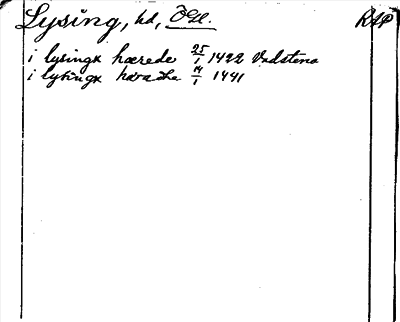 Lysing, hd, Ögl. RAP
i lysingx hærede 25/1 1422 Vadstena
i lysingx hæradhe 14/1 1441